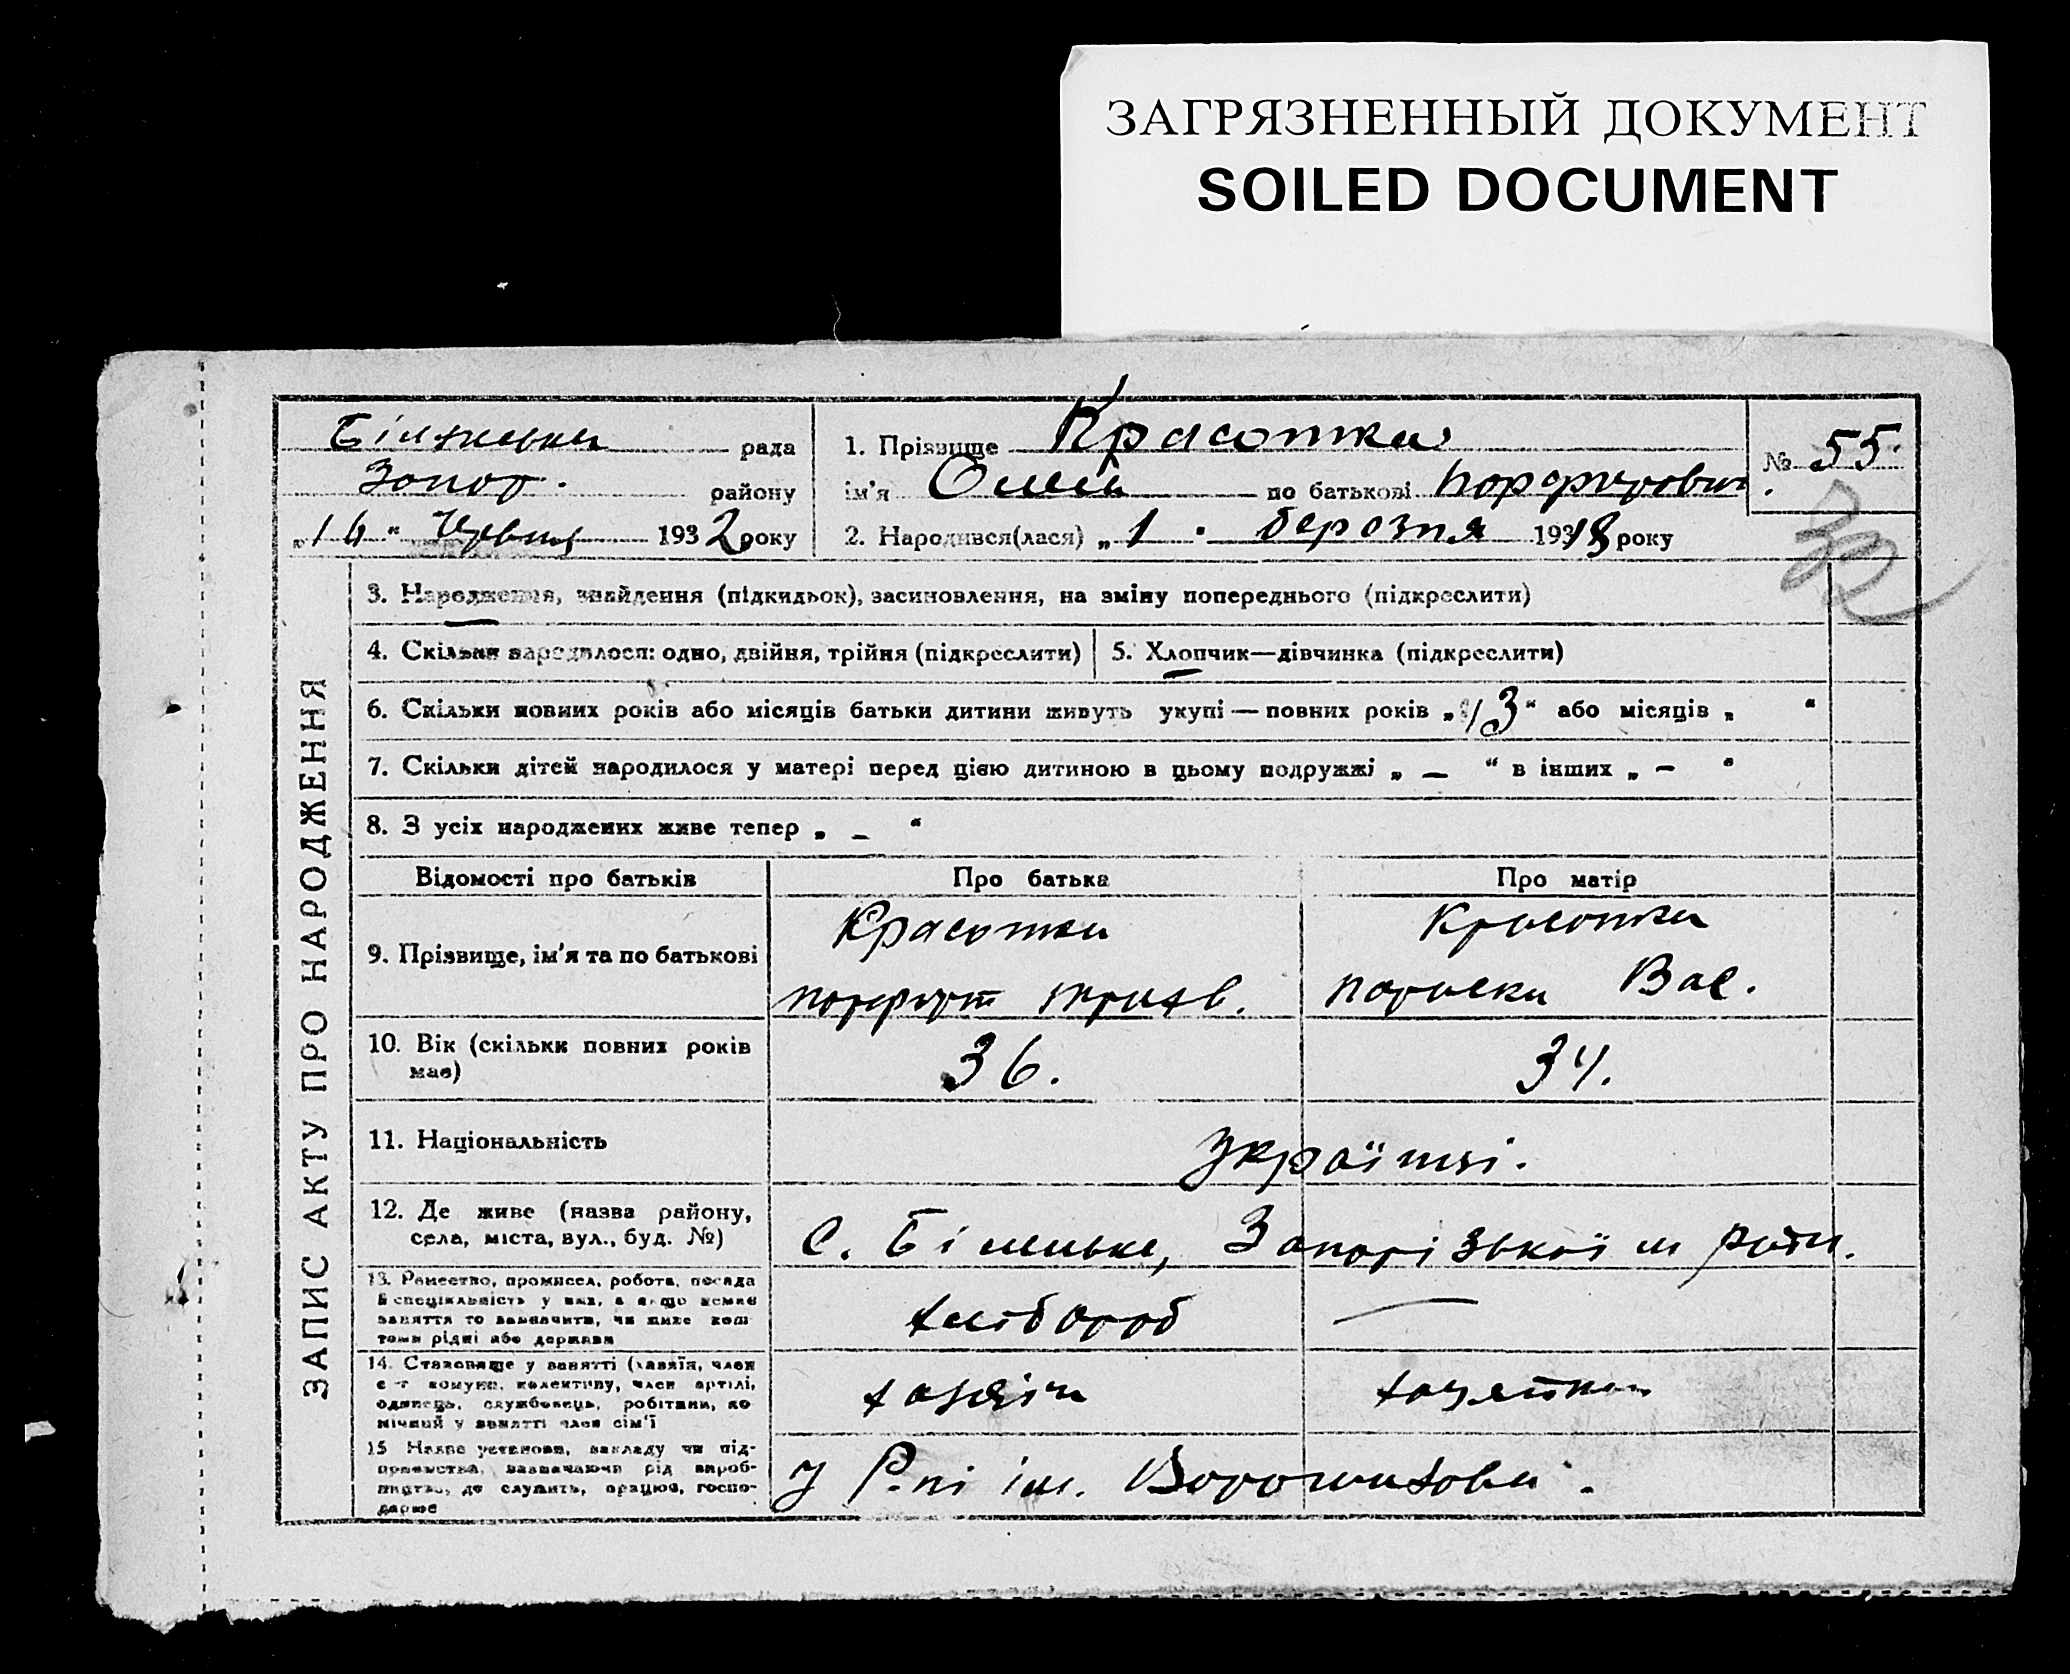 ЗАГРЯЗНЕННЫЙ ДОКУМЕНТ
SOILED DOCUMENT
рада
Запор. району
„16“ Червня 1932 року
1. Прізвище Красотка
ім'я Олесій по батькові Порфирович
2. Народився(лася) „1“ березня 1918 року
№ 55.
ЗАПИС АКТУ ПРО НАРОДЖЕННЯ
3. Народження, знайдення (підкидьок), засиновлення, на зміну попереднього (підкреслити)
4. Скільки народилося: одно, двійня, трійня (підкреслити)
5. Хлопчик—дівчинка (підкреслити)
6. Скільки повних років або місяців батьки дитини живуть укупі — повних років „13“ або місяців „ “
7. Скільки дітей народилося у матері перед цією дитиною в цьому подружжі „ — “ в інших „ — “
8. З усіх народжених живе тепер „ — “
Відомості про батьків
Про батька
Про матір
9. Прізвище, ім'я та по батькові
Красотка
Порфирій
Красотка
Параска Вас.
10. Вік (скільки повних років
має)
36.
34.
11. Національність
Українці.
12. Де живе (назва району,
села, міста, вул., буд. №)
С. Біленьке, Запорізької м ради.
13. Ремество, промисел, робота, посада
й спеціяльність у них, а якщо немає
заняття то зазначити, чи живе кош-
тами рідні або держави
хлібороб
—
14. Становище у занятті (хазяїн, член
с-г комуни, колективу, член артілі,
одинець, службовець, робітник, по-
мічний у занятті член сім'ї
хазяїн
хазяйка
15 Назва установи, закладу чи під-
приємства, зазначаючи рід вироб-
ництва, де служить, працює, госпо-
дарює
у Р.пі ім. Ворошилова.